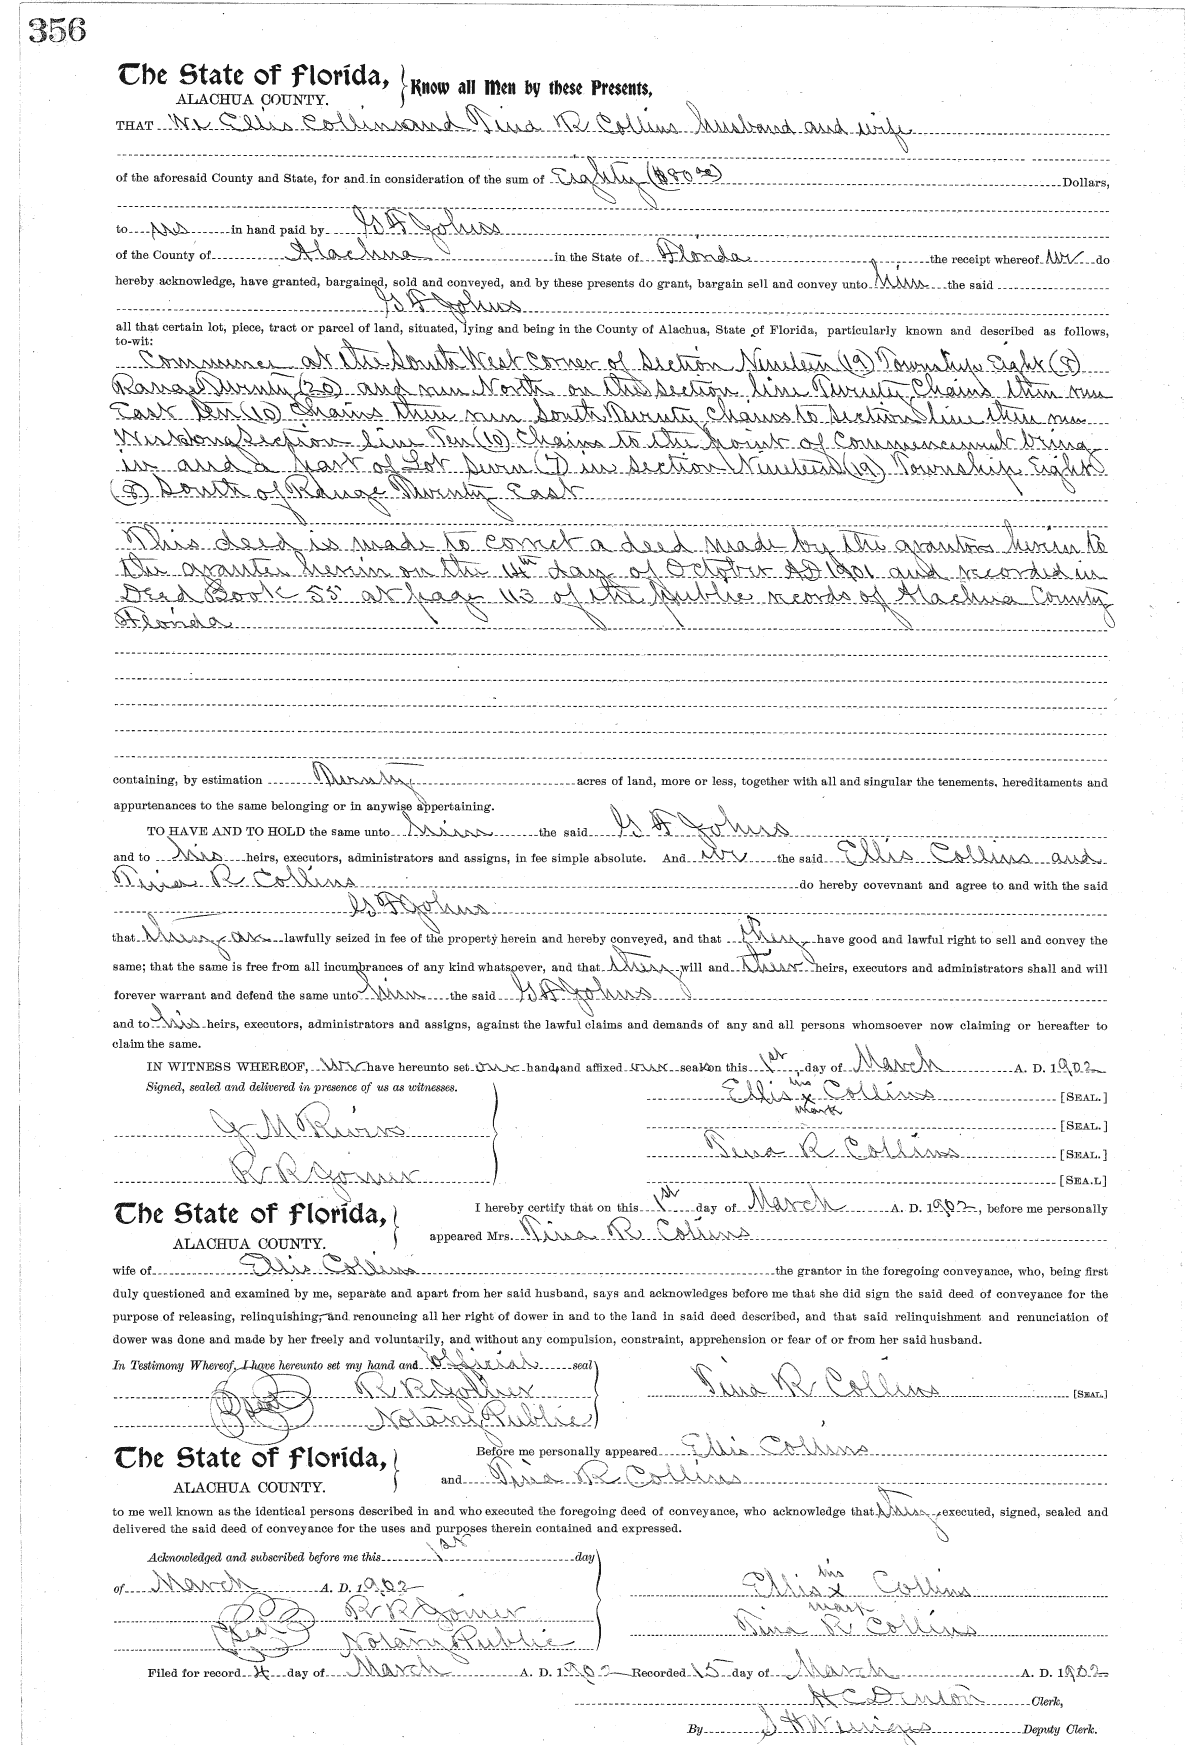 356
The State of Florida,
ALACHUA COUNTY.
Know all Men by these Presents,
THAT We Ellis Collins and Tina R Collins husband and wife
of the aforesaid County and State, for and in consideration of the sum of Eighty ($80 00) Dollars,
to us in hand paid by G F Johns
of the County of Alachua in the State of Florida the receipt whereof we do
hereby acknowledge, have granted, bargained, sold and conveyed, and by these presents do grant, bargain sell and convey unto him the said
G F Johns
all that certain lot, piece, tract or parcel of land, situated, lying and being in the County of Alachua, State of Florida, particularly known and described as follows,
to-wit:
Commence at the South West corner of Section Nineteen (19) Township Eight (8)
Range Twenty (20) and run North on the section line Twenty Chains then run
East Ten (10) Chains then run South Twenty chains to section line then run
West along Section line Ten (10) Chains to the point of Commencement being
in and a part of Lot Seven (7) in section Nineteen (19) Township Eight
(8) South of Range Twenty East
This deed is made to correct a deed made by the grantors herein to
the grantee herein on the 14th day of October AD 1901 and recorded in
Deed Book 55 at page 113 of the public records of Alachua County
Florida
containing, by estimation Twenty acres of land, more or less, together with all and singular the tenements, hereditaments and
appurtenances to the same belonging or in anywise appertaining.
TO HAVE AND TO HOLD the same unto him the said G F Johns
and to his heirs, executors, administrators and assigns, in fee simple absolute. And we the said Ellis Collins and
Tina R Collins do hereby covevnant and agree to and with the said
G F Johns
that they are lawfully seized in fee of the property herein and hereby conveyed, and that they have good and lawful right to sell and convey the
same; that the same is free from all incumbrances of any kind whatsoever, and that they will and their heirs, executors and administrators shall and will
forever warrant and defend the same unto him the said G F Johns
and to his heirs, executors, administrators and assigns, against the lawful claims and demands of any and all persons whomsoever now claiming or hereafter to
claim the same.
IN WITNESS WHEREOF, we have hereunto set our hands and affixed our seals on this 1st day of March A. D. 1902
Signed, sealed and delivered in presence of us as witnesses.
Ellis his x mark Collins [SEAL.]
G M Rivers
[SEAL.]
Tina R Collins [SEAL.]
R R
[SEA.L]
The State of Florida,
ALACHUA COUNTY.
I hereby certify that on this 1st day of March A. D. 1902, before me personally
appeared Mrs. Tina R Collins
wife of Ellis Collins the grantor in the foregoing conveyance, who, being first
duly questioned and examined by me, separate and apart from her said husband, says and acknowledges before me that she did sign the said deed of conveyance for the
purpose of releasing, relinquishing, and renouncing all her right of dower in and to the land in said deed described, and that said relinquishment and renunciation of
dower was done and made by her freely and voluntarily, and without any compulsion, constraint, apprehension or fear of or from her said husband.
In Testimony Whereof, I have hereunto set my hand and official seal
Seal R R
Tina R Collins [SEAL.]
Notary Public
The State of Florida,
ALACHUA COUNTY.
Before me personally appeared Ellis Collins
and Tina R Collins
to me well known as the identical persons described in and who executed the foregoing deed of conveyance, who acknowledge that they executed, signed, sealed and
delivered the said deed of conveyance for the uses and purposes therein contained and expressed.
Acknowledged and subscribed before me this 1st day
of March A. D. 1902
Ellis his x mark Collins
Seal R R
Tina R Collins
Notary Public
Filed for record 4 day of March A. D. 1902 Recorded 15 day of March A. D. 1902
H C Denton Clerk,
By S H Wienges Deputy Clerk.